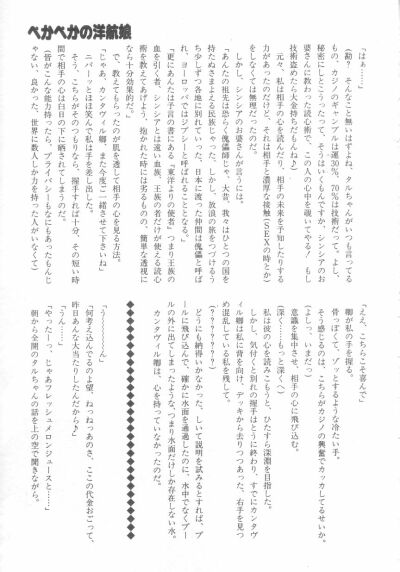 べかべかの洋航娘
「はぁ……」
(勘? そんなこと無いはずよね、タルちゃんがいつも言ってる
もの、カジノのギャンブルは運30%、70%は技術だって。よし、
秘密にしとこうったって、そうはいくもんですか、シンシアのお
婆さんに教わった読心術で、この人の心中を覗いてやる! もし
技術盗めたら大金持ちだもんね♪)
元々、私は相手の心を読んだり、相手の未来を予知したりする
力があったのだけど、それは相手と濃厚な接触(SEXの時とか)
をしなくては無理だったのだ。
しかし、シンシアのお婆さんが言うには。
「あんたの祖先は恐らく傀儡師じゃ、大昔、我々はひとつの国を
持たぬさまよえる民族じゃった。しかし、放浪の旅をつづけるう
ち少しずつ各地に別れていった。日本に渡った仲間は傀儡と呼ば
れ、ヨーロッパではジプシーと呼ばれることとなる。」
「更にあんたは予言の書にある『東洋よりの使者』つまり王族の
血を引く者、シンシアとは遠い血族、王族の者だけが使える読心
術を教えてあげよう、抱かれた時には劣るものの、簡単な透視に
なら十分効果的だ。」
で、教えてもらったのが肌を透して相手の心を見る方法。
「じゃあ、カンタヴィル卿、また今度ご一緒させて下さいね」
ニパーッとほほ笑んで私は手を差し出した。
そう、こちらがそのつもりなら、握手すれば十分、その短い時
間で相手の心は白日の下に晒されてしまうのだ。
(皆がこんな能力持ったら、プライバシーもなにもあったもんじ
ゃない、良かった、世界に数人しか力を持った人がいなくて)
「ええ、こちらこそ喜んで」
卿が私の手を握る。
骨っぽくて、ゾッとするような冷たい手。
そう感じるのは、こちらがカジノの興奮でカッカしてるせいか。
(よしっ、今だっ)
意識を集中させ、相手の心に飛び込む。
深く……もっと深く〉
私は彼の心を読みこもうと、ひたすら深淵を目指した。
しかし、気付くと別れの握手はとうに終わり、すでにカンタヴ
ィル卿は私に背を向け、デッキから去りつつあった、右手を見つ
め混乱している私を残して。
(???????)
どうにも納得いかなかった、しいて説明を試みるとすれば、プ
ールに飛び込んで、確かに水面を通過したのに、水中でなくプー
ルの外に出てしまったような、つまり水面だけしか存在しない水。
カンタヴィル卿は、心を持っていなかったのだ。
◆◆◆◆◆◆◆◆◆◆◆◆◆◆◆◆◆◆◆◆
「うーん」
「何考え込んでるのよ望、ねっねっあのさ、ここの代金おごって、
昨日あんな大当たりしたんだから♪」
「うん……」
「やったーっ、じゃあフレッシュメロンジュースと……」
朝から全開のタルちゃんの話を上の空で聞きながら。